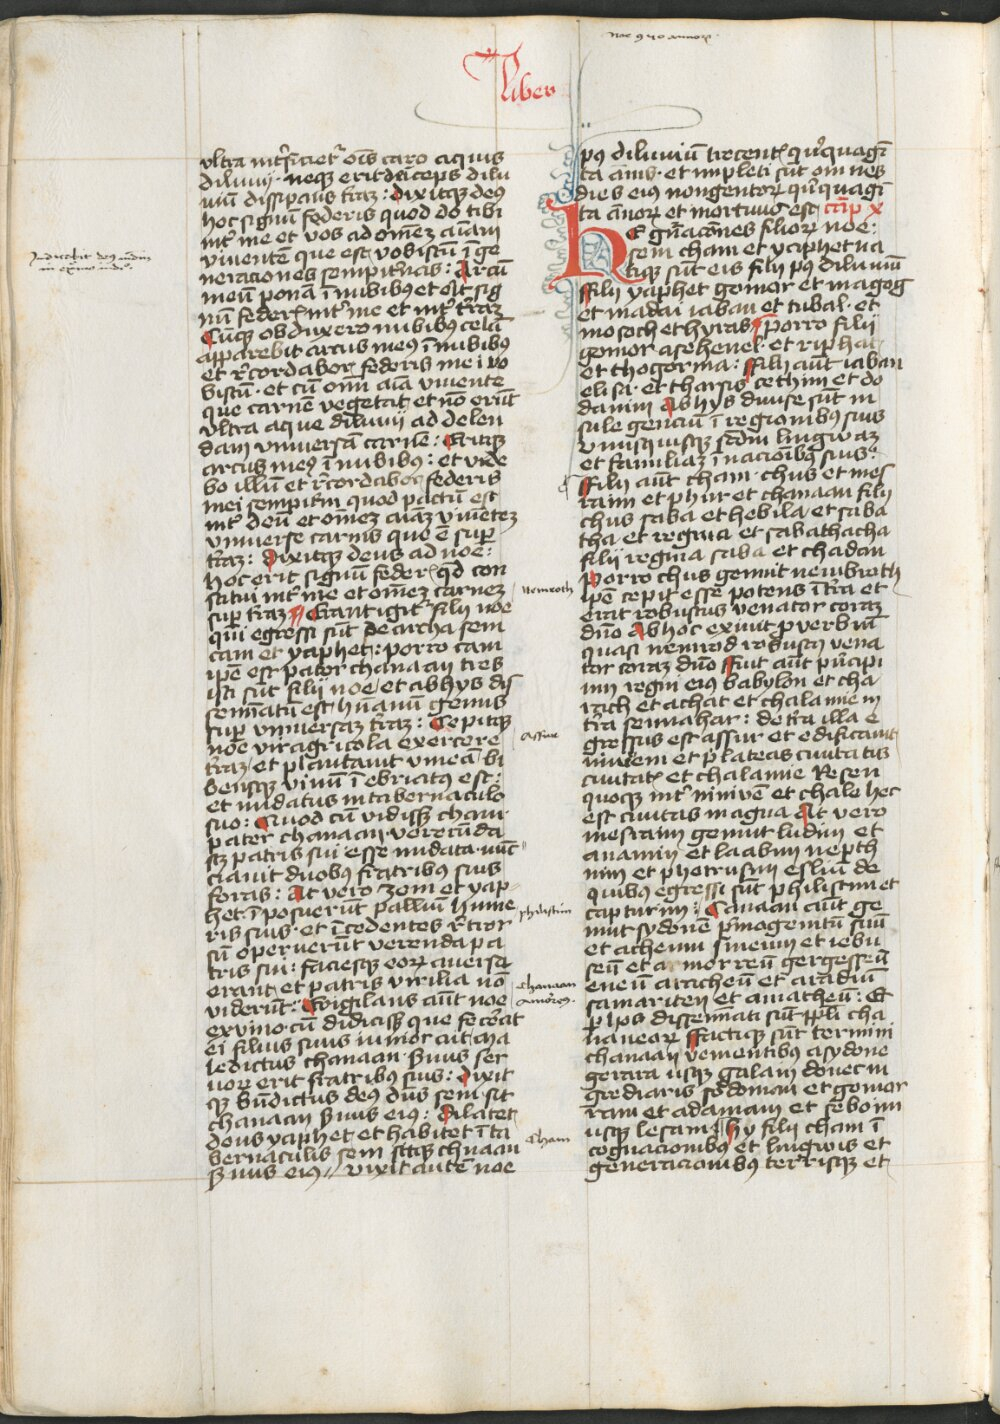 Noe 950 annorum
Liber
ultra int͛ficiet͛ oīs caro aquis
diluuij · neq̄ erit deīceps dilu
uiū dissipans t͛raz : Dixitq̄ deus
hoc signū federis quod do tibi
int͛ me et vos ad om̄ez aīam
viuentē que est vobiscū ī ge
neraciones sempit͛nas : Arcū
meū ponā ī nubibus et erit sig
nū feder͛ int͛ me et int͛ t͛raz
Cūq̄ obduxero nubibus celū
apparebit arcus meus ī nubibus
et r͛cordabor federis mei vo
biscū · et cū om̄i aīa viuente
que carnē vegetat et nō erūt
ultra aque diluuij ad delen
dam vniuersā carnē : Eritq̄
arcus meus ī nubibus : et vide
bo illum et r͛cordabor federis
mei sempit͛m quod pactū est
int͛ deū et om̄ez aīaz viuētez
vniuerse carnis que ē sup͛
t͛raz : Dixitq̄ deus ad noe :
hoc erit signū feder͛ qd con
stitui int͛ me et om̄ez carnez
sup͛ t͛raz Erant igit͛ filij noe
qui egressi sūt de archa sem
cam et yaphet : porro cam
ipē est pater chanaan tres
isti sūt filij noe / et ab hys dis
semīatū est hūanū genus
sup͛ vniuersaz t͛raz : Cepitq̄
noe vir agricola exercere
t͛raz / et plantauit vinea / bi
bensq̄ vinū īebriatus est :
et nudatus in tabernaculo
suo : Quod cū vidissz cham
pater chanaan verecūda
sz patris sui esse nudata nūc
ciauit duobus fratribus suis
foras : At vero Sem et yap
het īposuerūt palliū hume
ris suis · et īcedentes r͛tror
sū operuerūt verenda pa
tris sui : faciesq̄ eor͛ auersa
erant / et patris virilia nō
viderūt : Euigilans aūt noe
ex vino cū didicissz que fec͛at
ei filius suus iunior ait ma
ledictus chanaan s͛uus ser
uor͛ erit fratribus suis : Dixit
q̄ bn̄dictus deus dn̄s sem sit
chanaan s͛uus eius : Dilatet
deus yaphet / et habitet ī ta
bernaculis sem sitq̄ chnaan
s͛uus eius // vixit autē noe
Nemroth
Assur
philistiim
chanaan
amorreus
Cham
pꝰ diluuiū trecent͛ qīquagī
ta ānis · et impleti sūt om̄nes
dies eius nongentor͛ qīquagī
ta ānor͛ et mortuus est Cap͛ x
He gn̄acōnes filior͛ noe :
sem cham et yaphet na
tiq̄ sūt eis filij pꝰ diluuiū
ffilij yaphet gomor et magog
et madai iaban et tubal · et
mosoch et hyras Porro filij
gomor asehenel · et riphat
et thogorma : ffilij aūt iaban
elisa · et tharsis cethim et do
danim Ab hys diuise sūt in
sule genciū ī regionibus suis
vnusquisq̄ sc͛dm lingwaz
et familiaz ī nacōībus suis :
ffilij aūt cham · chus et mes
raim et phut et chanaan filij
chus saba et hebila et saba
tha et regma et sabathacha
filij regma saba et chadan
Porro chus genuit nembroth
ipē cepit esse potens ī t͛ra et
erat robustus venator coraz
dn̄o Ab hoc exiuit p͛verbiū
quasi nemrod robustus vena
tor coraz dn̄o ffuit aūt prīcipi
um regni eius babylon et cha
rach et achat et chalanne in
t͛ra sennahar : de t͛ra illa e
gressus est assur et edificauit
niniuem et plateas ciuitatis
ciuitat͛ et chalanne Resen
quoq̄ int͛ niniuē et chale hec
est ciuitas magna At vero
mesraim genuit ludim et
anamim et laabim nepth
nim et phetrusim esliū de
quibus egressi sūt philistim et
capturim : Canaan aūt ge
nuit sydonē p͛mogenitū suū
et acheum sineum et iebu
seū et amorreū gergeseū
eueū aracheū et aradiū
samariten et amatheū : Et
p͛ ip̄os dissemīati sūt pp̄li cha
naneor͛ ffactiq̄ sūt termini
chanaan venientibus a sydone
gerara usq̄ gazam donec in
grediaris sodomam et gomor
ram et adamam et seboim
usq̄ lesam Hy filij cham ī
cognacionibus et lingwis et
generacionibus terrisq̄ et